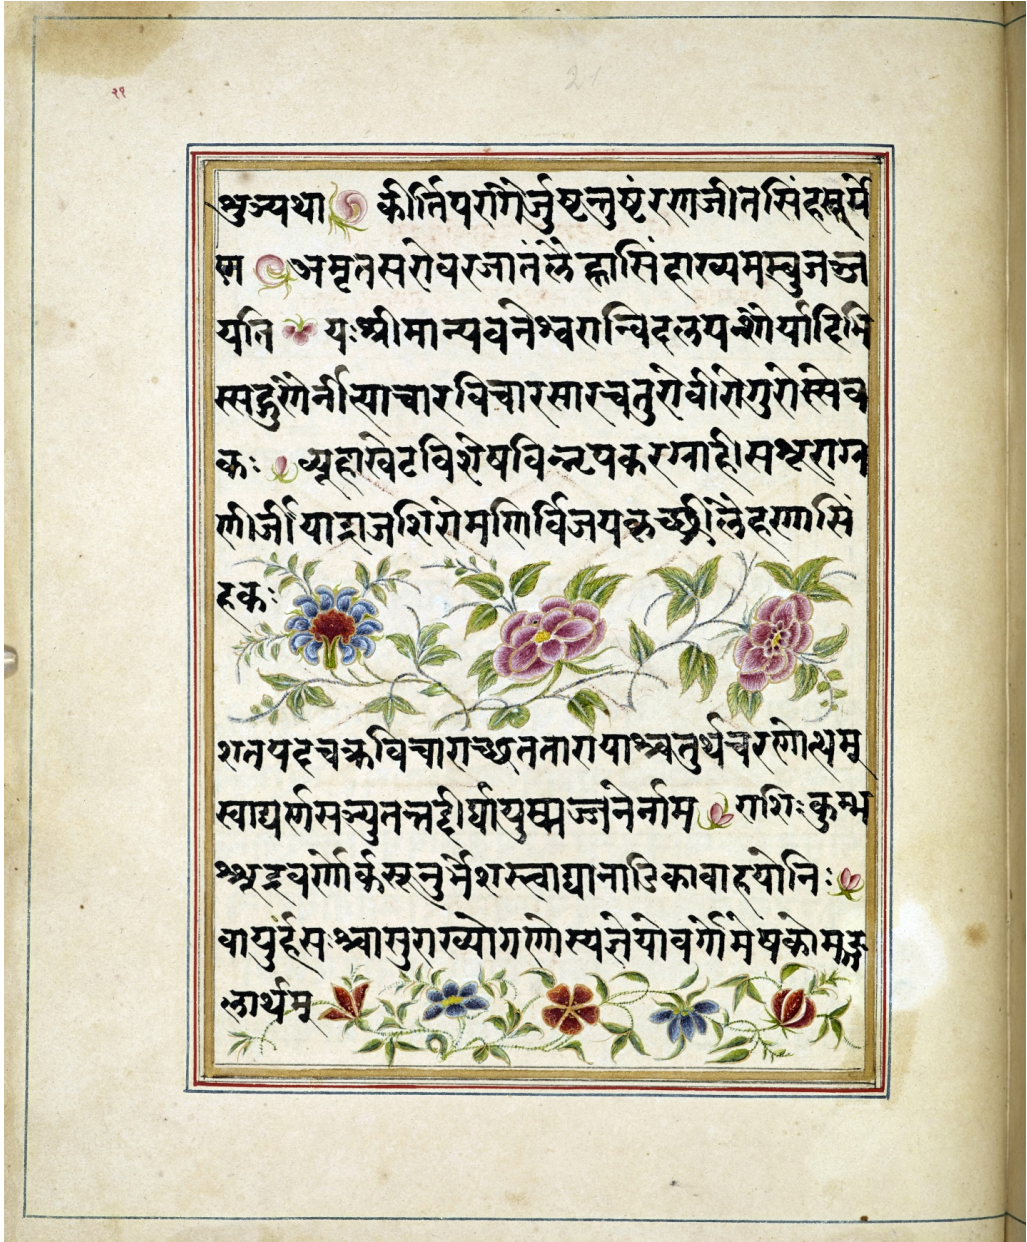 २१
21
भ्रुञ्यथा कीर्तिपरागैर्जुष्टन्तुष्टं रणजीतसिंहसूर्ये
ण अमृतसरोवरजातं लैह्णासिंहाख्यमम्बुजञ्ज
यति यःश्रीमान्यवनेश्वरान्विदलयन्शौर्यादिभि
स्सद्गुणैर्नीत्याचारविचारसारचतुरोवीरोगुरोस्सेव
कः व्यूहाखेटविशेषवि सश्शूराग्र
णीर्जीयाद्राजशिरोमणिर्विजयकृच्छ्रीलैहणासिं
हकः
शतपदचक्रविचाराच्छततारायाश्चतुर्थचरणोत्थमू
स्वाद्यर्णसञ्युतन्तद्दीर्घायुष्मज्जनेर्नाम राशिःकुम्भ
श्शूद्रवर्णोर्कसूनुर्भेशस्स्वाद्यानाडिकावाहयोनिः
वायुर्हंसःश्चासुराख्योगणोस्यज्ञेयोवर्गोमेषकोमङ्ग
लार्थम्